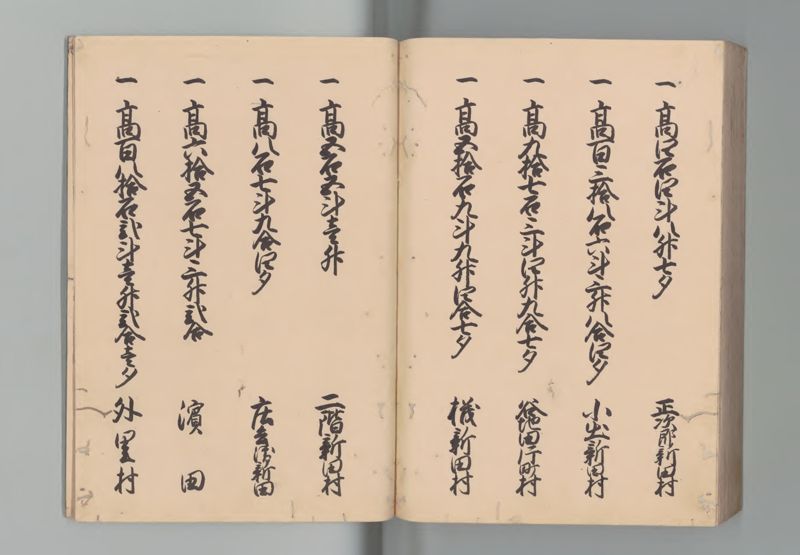 一 高四石四斗八升七夕 正次郎新田村
一 高百三拾八石六斗三升八合四夕 小出新田村
一 高九拾七石三斗四升九合七夕 田片町村
一 高五拾石九斗九升四合七夕 機新田村
一 高五石五斗壱升 二階新田村
一 高八石七斗九合四夕 庄兵衛新田
一 高六拾五石七斗三升弐合 濱田
一 高百八拾石弐斗壱升弐合壱夕 外里村